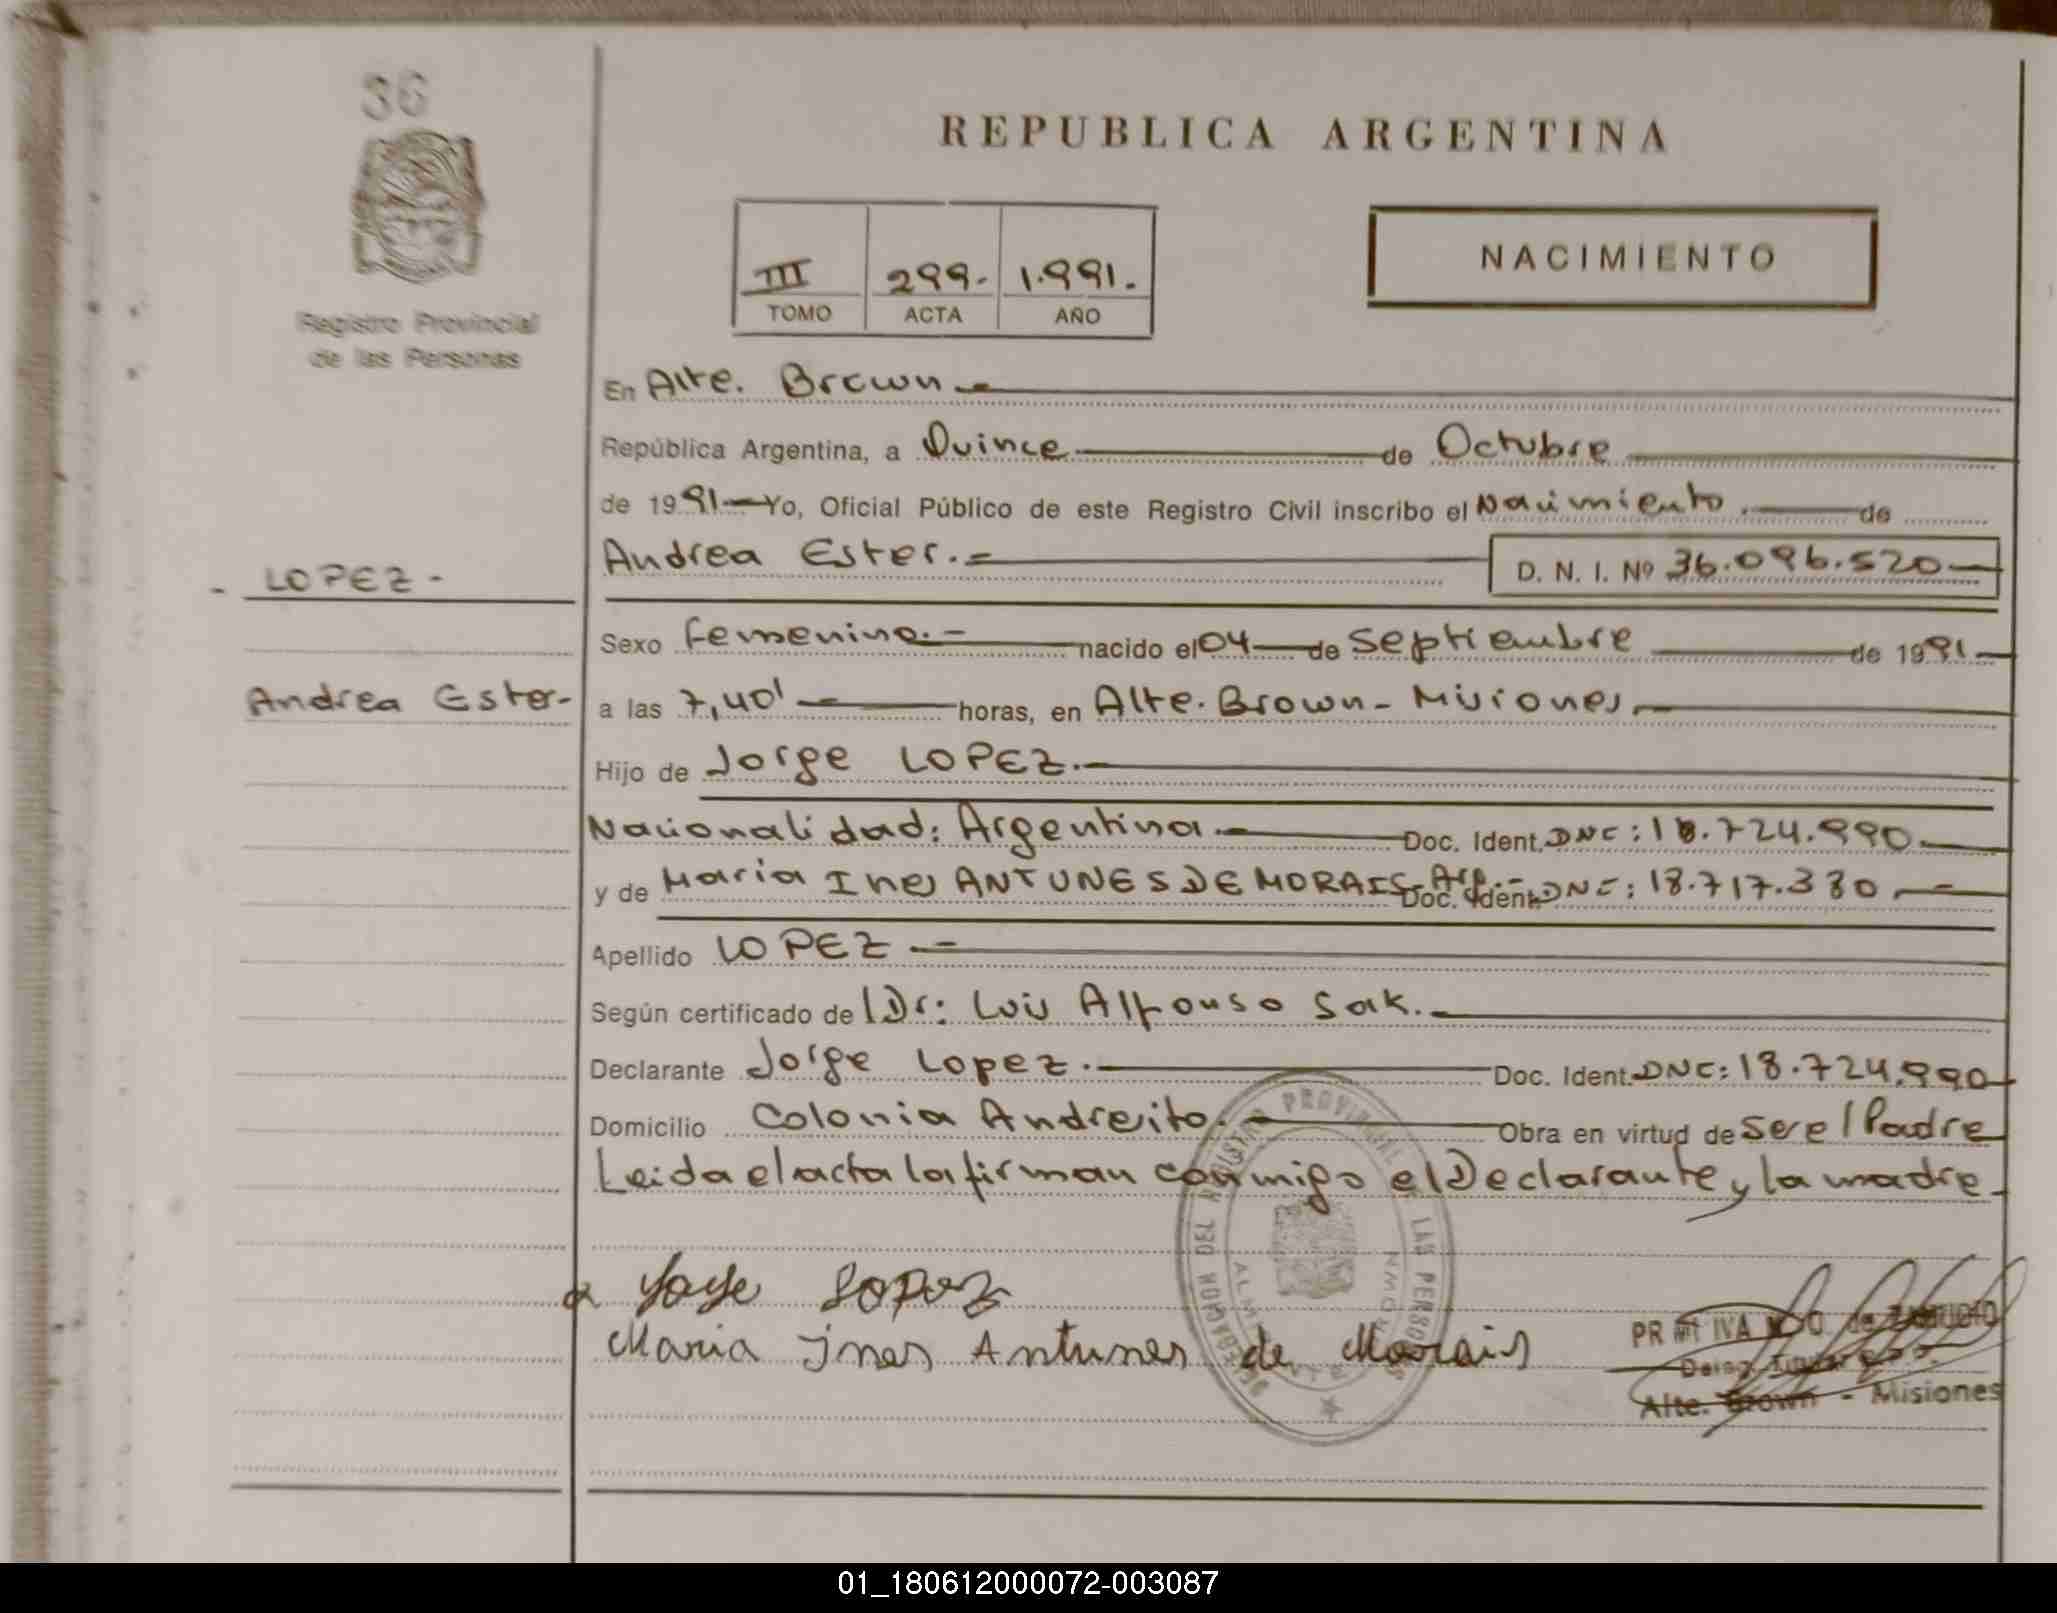 36
Registro Provincial
de las Personas
REPUBLICA ARGENTINA
III 299.- 1.991.
TOMO ACTA AÑO
NACIMIENTO
En Alte. Brown
República Argentina, a Quince de Octubre
de 1991 Yo, Oficial Público de este Registro Civil inscribo el Nacimiento de
Andrea Ester.- D. N. I. Nº 36.096.520
- LOPEZ -
Sexo Femenino.- nacido el 04 de Septiembre de 1991
Andrea Ester-
a las 7,40' horas, en Alte. Brown - Misiones
Hijo de Jorge LOPEZ.
Nacionalidad: Argentina Doc. Ident. DNI: 18.724.990
y de Maria Ines ANTUNES DE MORAIS- Arg.- Doc. Ident. DNI: 18.717.380
Apellido LOPEZ
Según certificado de Dr: Luis Alfonso Sak.
Declarante Jorge Lopez. Doc. Ident. DNI: 18.724.990
Domicilio Colonia Andresito. Obra en virtud de ser el Padre
Leida el acta la firman conmigo el Declarante y la madre
Jorge Lopez
Maria Ines Antunes de Morais
Alte. Brown - Misiones
01_180612000072-003087